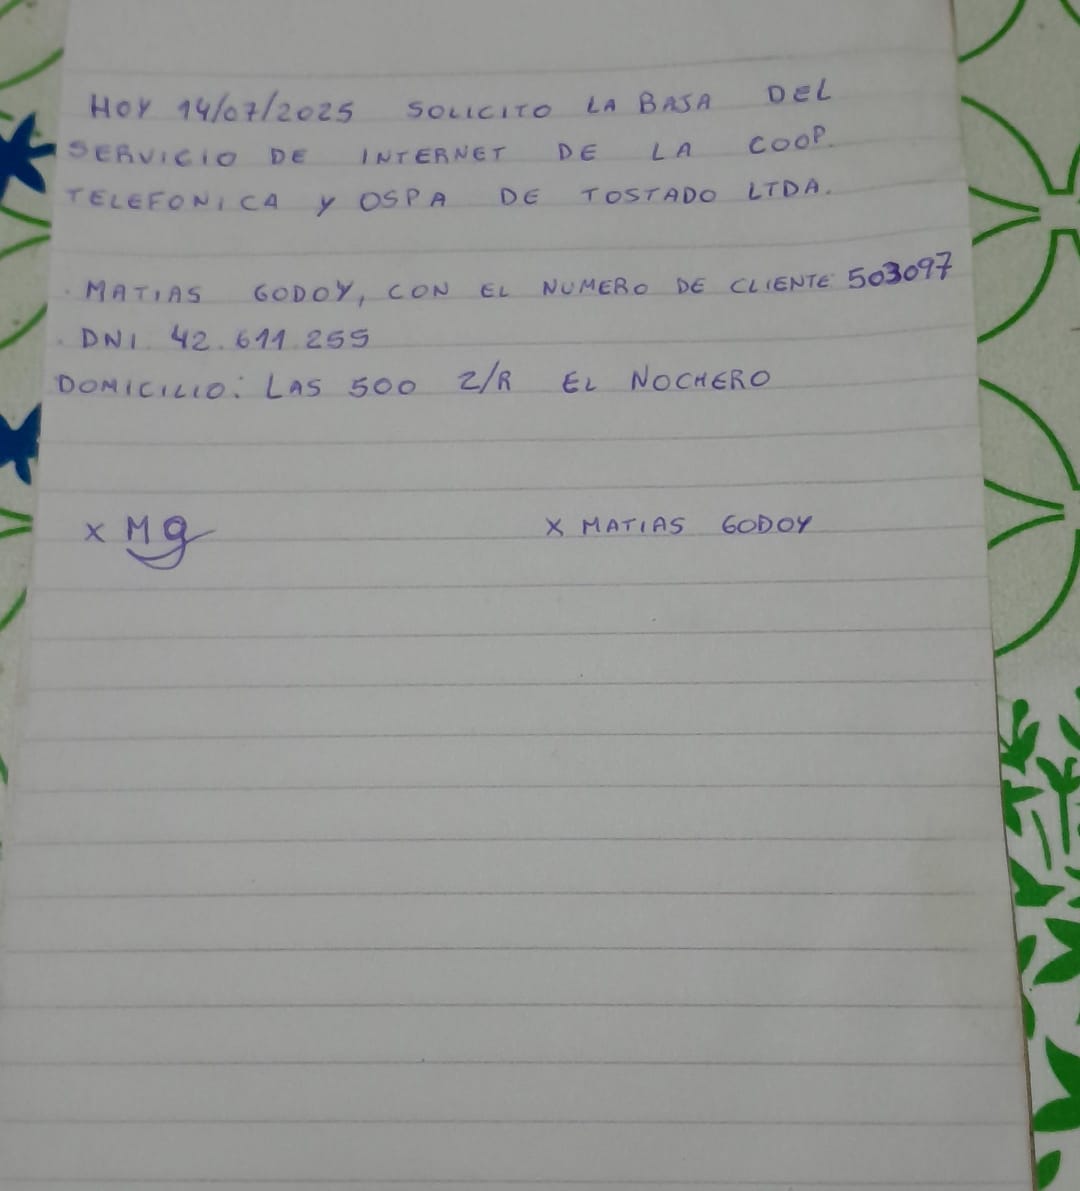 HOY 14/07/2025 SOLICITO LA BAJA DEL
SERVICIO DE INTERNET DE LA COOP.
TELEFONICA Y OSPA DE TOSTADO LTDA.
. MATIAS GODOY, CON EL NUMERO DE CLIENTE 503097
. DNI 42.611.255
DOMICILIO: LAS 500 Z/R EL NOCHERO
X Mg X MATIAS GODOY